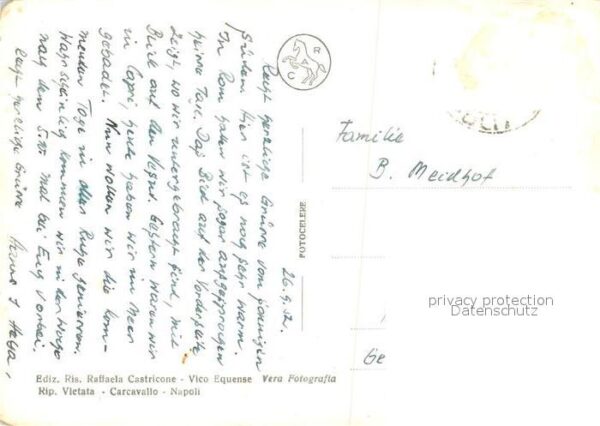 26.9.72.
Recht herzliche Grüsse vom sonnigen
Süden. Hier ist es noch sehr warm.
In Rom hatten wir sogar ausgesprochen
heisse Tage. Das Bild auf der Vorderseite
zeigt, wo wir untergebracht sind, mit
Blick auf den Vesuv. Gestern waren wir
in Capri, heute haben wir im Meer
gebadet. Nun wollen wir die kom-
menden Tage in aller Ruhe geniessen.
Wahrscheinlich kommen wir in der Woche
nach dem 5.10 mal bei Euch vorbei.
Recht herzliche Grüsse
Hanns & Helga,
R
A
C
FOTOCELERE
Familie
B. Meidhof
Ge
privacy protection
Datenschutz
Ediz. Ris. Raffaela Castricone - Vico Equense Vera Fotografia
Rip. Vietata - Carcavallo - Napoli